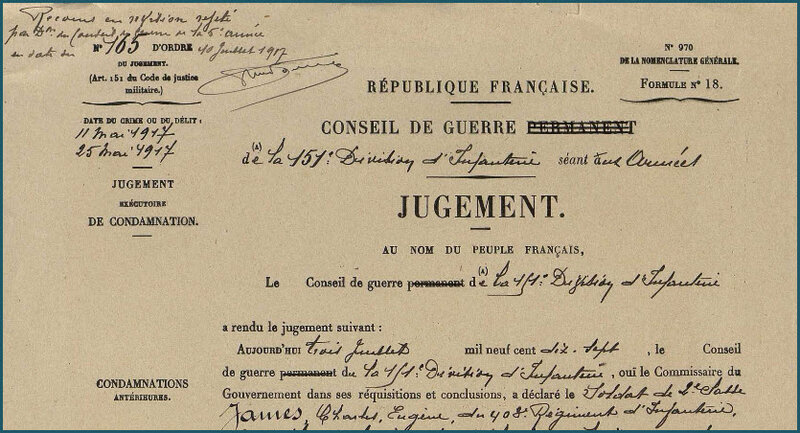 Recours en révision rejeté
par Don du Conseil de guerre de la 5e armée
en date du 10 Juillet 1917
N° 165 D'ORDRE
DU JUGEMENT.
(Art. 151 du Code de justice
militaire.)
N° 970
DE LA NOMENCLATURE GÉNÉRALE.
FORMULE N° 18.
DATE DU CRIME OU DU DÉLIT :
11 Mai 1917
25 Mai 1917
JUGEMENT
EXÉCUTOIRE
DE CONDAMNATION.
RÉPUBLIQUE FRANÇAISE.
CONSEIL DE GUERRE PERMANENT
(A)
de la 151e Division d'Infanterie séant aux Armées
JUGEMENT.
AU NOM DU PEUPLE FRANÇAIS,
(A)
Le Conseil de guerre permanent de la 151e Division d'Infanterie
a rendu le jugement suivant :
AUJOURD'HUI trois Juillet mil neuf cent dix-sept, le Conseil
de guerre permanent de la 151e Division d'Infanterie, ouï le Commissaire du
Gouvernement dans ses réquisitions et conclusions, a déclaré le Soldat de 2e classe
James, Charles, Eugène, du 408e Régiment d'Infanterie,
CONDAMNATIONS
ANTÉRIEURES.